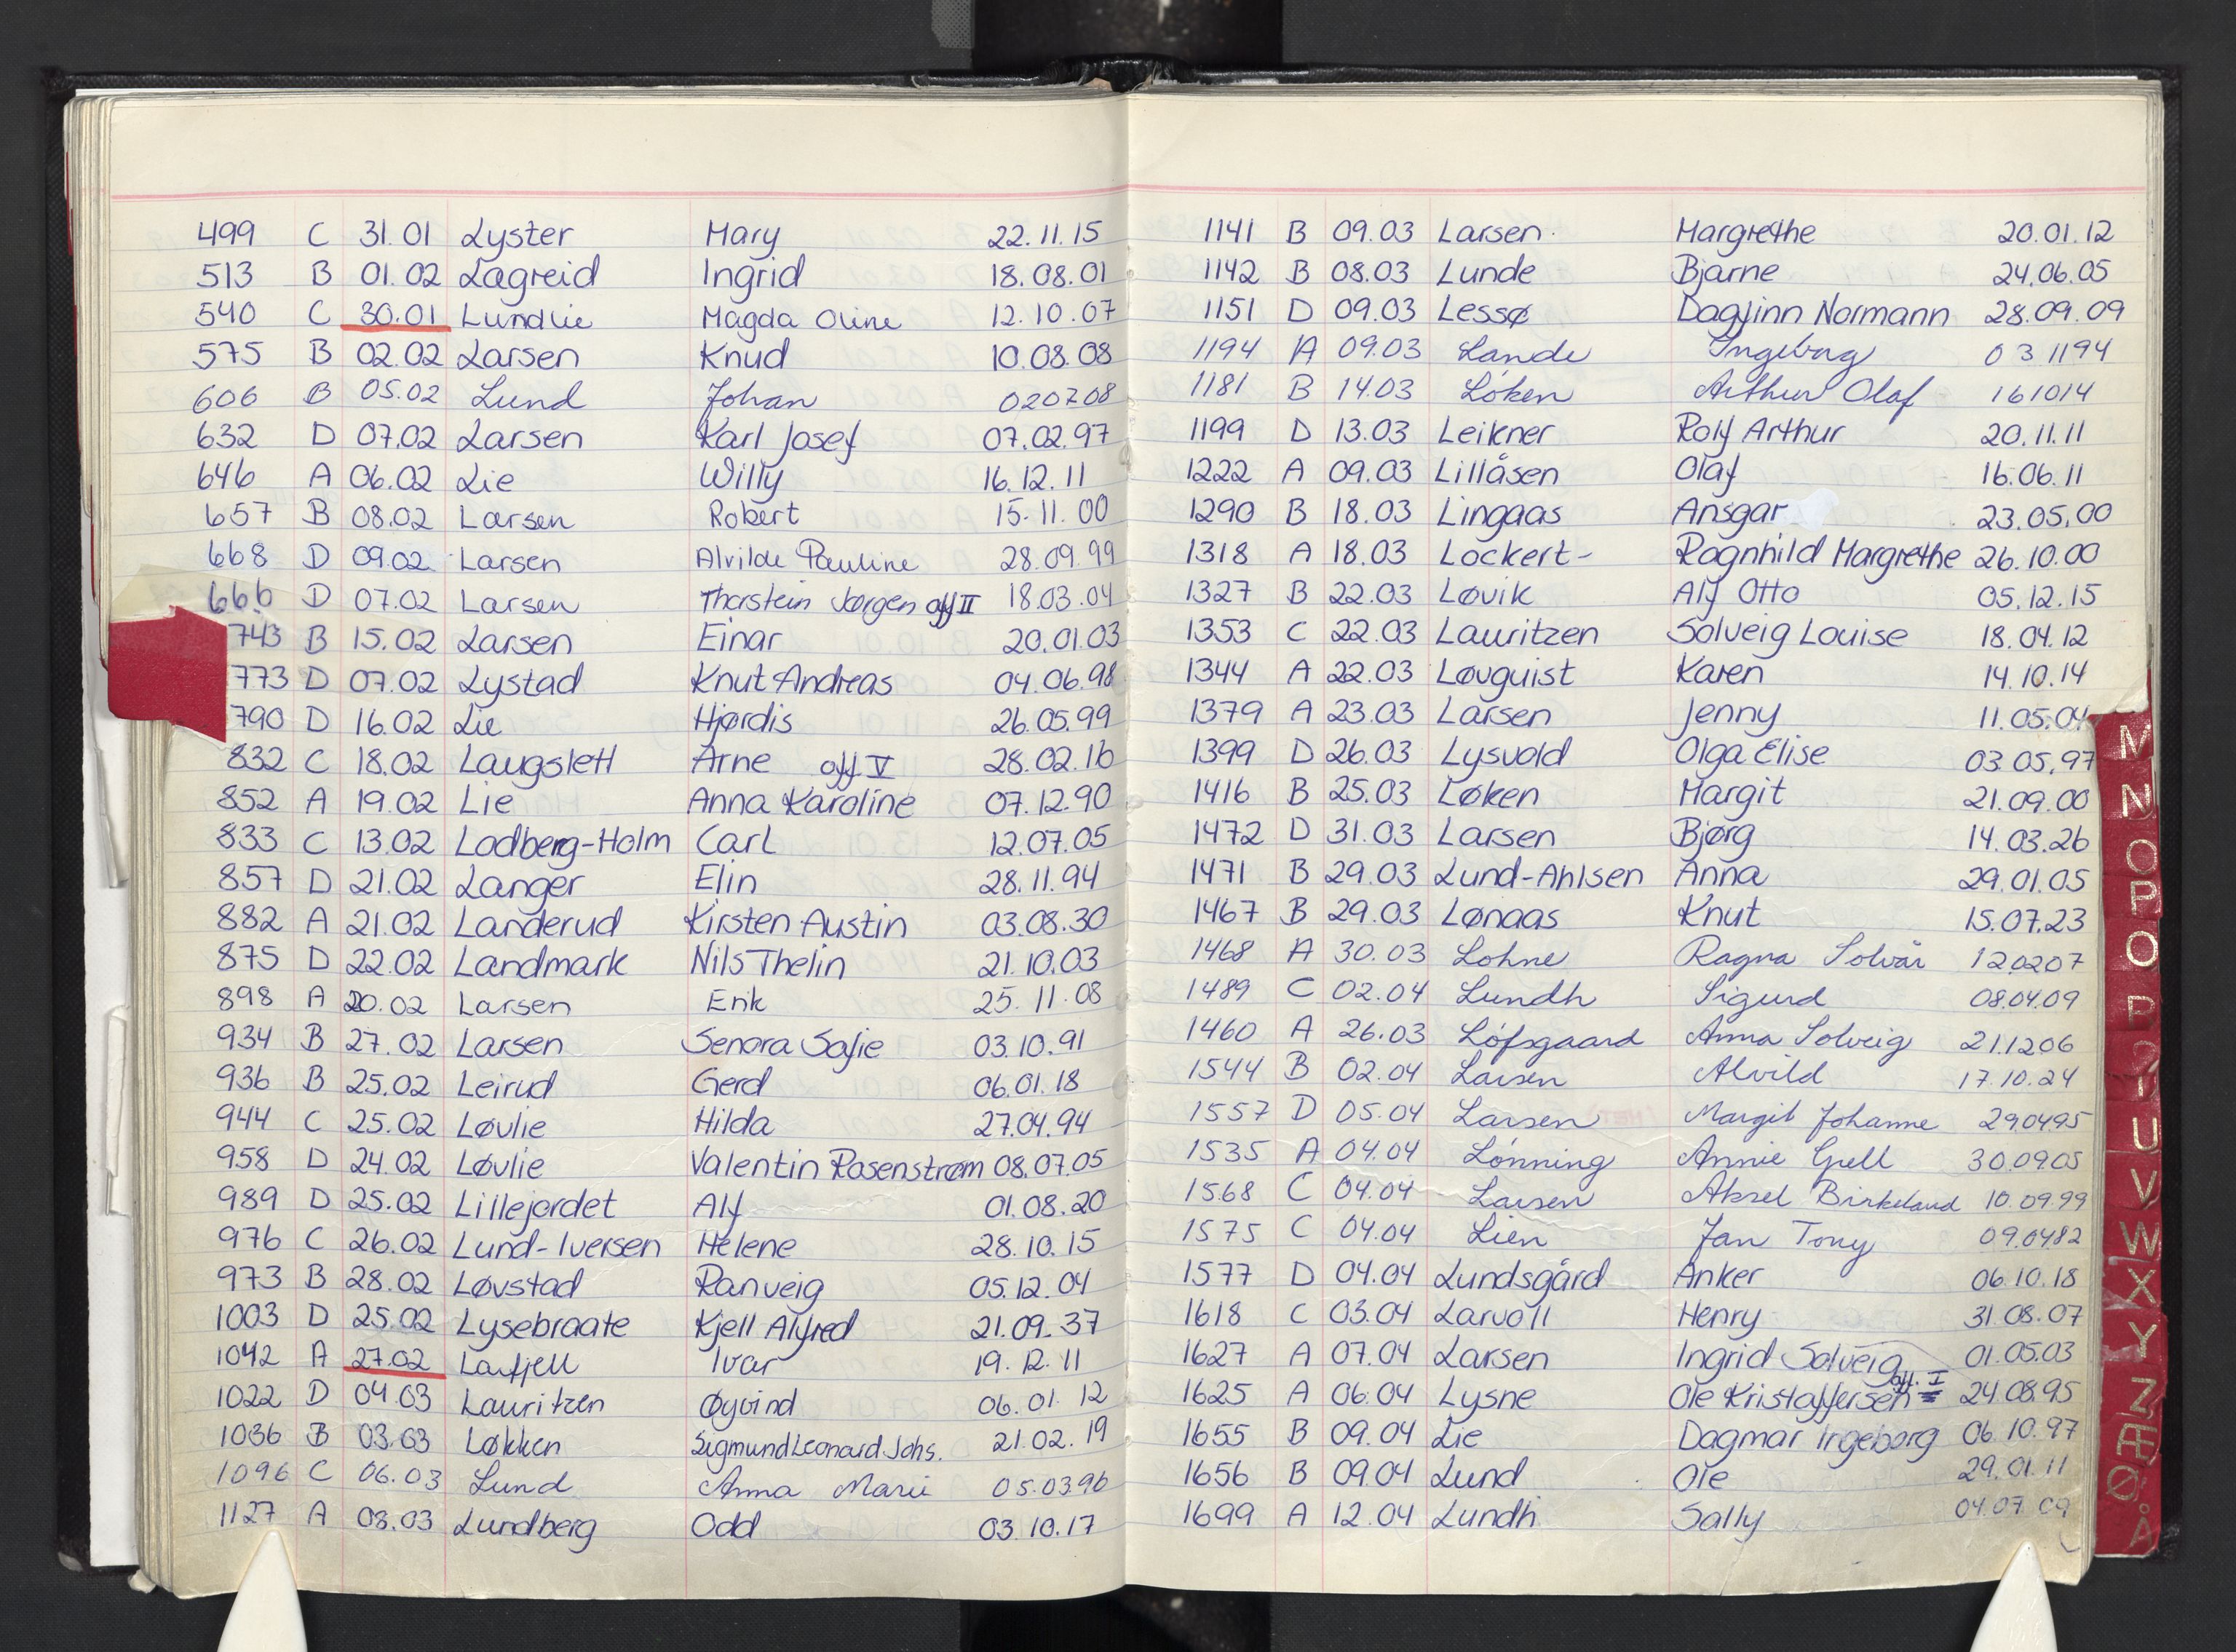 499 C 31.01 Lyster Mary 22.11.15
513 B 01.02 Lagreid Ingrid 18.08.01
540 C 30.01 Lundlie Magda Oline 12.10.07
575 B 02.02 Larsen Knud 10.08.08
606 B 05.02 Lund Johan 020708
632 D 07.02 Larsen Karl Josef 07.02.97
646 A 06.02 Lie Willy 16.12.11
657 B 08.02 Larsen Robert 15.11.00
668 D 09.02 Larsen Alvilde Pauline 28.09.99
666 D 07.02 Larsen Thorstein Jørgen aff II 18.03.04
743 B 15.02 Larsen Einar 20.01.03
773 D 07.02 Lystad Knut Andreas 04.06.98
790 D 16.02 Lie Hjørdis 26.05.99
832 C 18.02 Laugslett Arne aff V 28.02.16
852 A 19.02 Lie Anna Karoline 07.12.90
833 C 13.02 Lodberg-Holm Carl 12.07.05
857 D 21.02 Langer Elin 28.11.94
882 A 21.02 Landerud Kirsten Austin 03.08.30
875 D 22.02 Landmark Nils Thelin 21.10.03
898 A 20.02 Larsen Erik 25.11.08
934 B 27.02 Larsen Senora Sofie 03.10.91
936 B 25.02 Leirud Gerd 06.01.18
944 C 25.02 Løvlie Hilda 27.04.94
958 D 24.02 Løvlie Valentin Rosenstrøm 08.07.05
989 D 25.02 Lillejordet Alf 01.08.20
976 C 26.02 Lund-Iversen Helene 28.10.15
973 B 28.02 Løvstad Ranveig 05.12.04
1003 D 25.02 Lysebraate Kjell Alfred 21.09.37
1042 A 27.02 Laufjell Ivar 19.12.11
1022 D 04.03 Lauritzen Øyvind 06.01.12
1036 B 03.03 Løkken Sigmund Leonard Johs. 21.02.19
1096 C 06.03 Lund Anna Marie 05.03.96
1127 A 08.03 Lundberg Odd 03.10.17
1141 B 09.03 Larsen Margrethe 20.01.12
1142 B 08.03 Lunde Bjarne 24.06.05
1151 D 09.03 Lessø Dagfinn Normann 28.09.09
1194 A 09.03 Lande Ingeborg 031194
1181 B 14.03 Løken Arthur Olaf 161014
1199 D 13.03 Leikner Rolf Arthur 20.11.11
1222 A 09.03 Lillåsen Olaf 16.06.11
1290 B 18.03 Lingaas Ansgar 23.05.00
1318 A 18.03 Lockert- Ragnhild Margrethe 26.10.00
1327 B 22.03 Løvik Alf Otto 05.12.15
1353 C 22.03 Lauritzen Solveig Louise 18.04.12
1344 A 22.03 Løvquist Karen 14.10.14
1379 A 23.03 Larsen Jenny 11.05.04
1399 D 26.03 Lysvold Olga Elise 03.05.97
1416 B 25.03 Løken Margit 21.09.00
1472 D 31.03 Larsen Bjørg 14.03.26
1471 B 29.03 Lund-Ahlsen Anna 29.01.05
1467 B 29.03 Lønaas Knut 15.07.23
1468 A 30.03 Lohne Ragna Solvår 120207
1489 C 02.04 Lundh Sigurd 08.04.09
1460 A 26.03 Løfsgaard Anna Solveig 21.1206
1544 B 02.04 Larsen Alvild 17.10.24
1557 D 05.04 Larsen Margit Johanne 290495
1535 A 04.04 Lønning Annie Grell 30.0905
1568 C 04.04 Larsen Aksel Birkeland 10.09.99
1575 C 04.04 Lien Jan Tony 09.0482
1577 D 04.04 Lundsgård Anker 06.10.18
1618 C 03.04 Larvoll Henry 31.08.07
1627 A 07.04 Larsen Ingrid Solveig 01.05.03
1625 A 06.04 Lysne Ole Kristoffersen aff. I 24.08.95
1655 B 09.04 Lie Dagmar Ingeborg 06.10.97
1656 B 09.04 Lund Ole 29.01.11
1699 A 12.04 Lundh Sally 04.07.09
M
N
O
P
U
V
W
X
Y
Z
Æ
Ø
Å